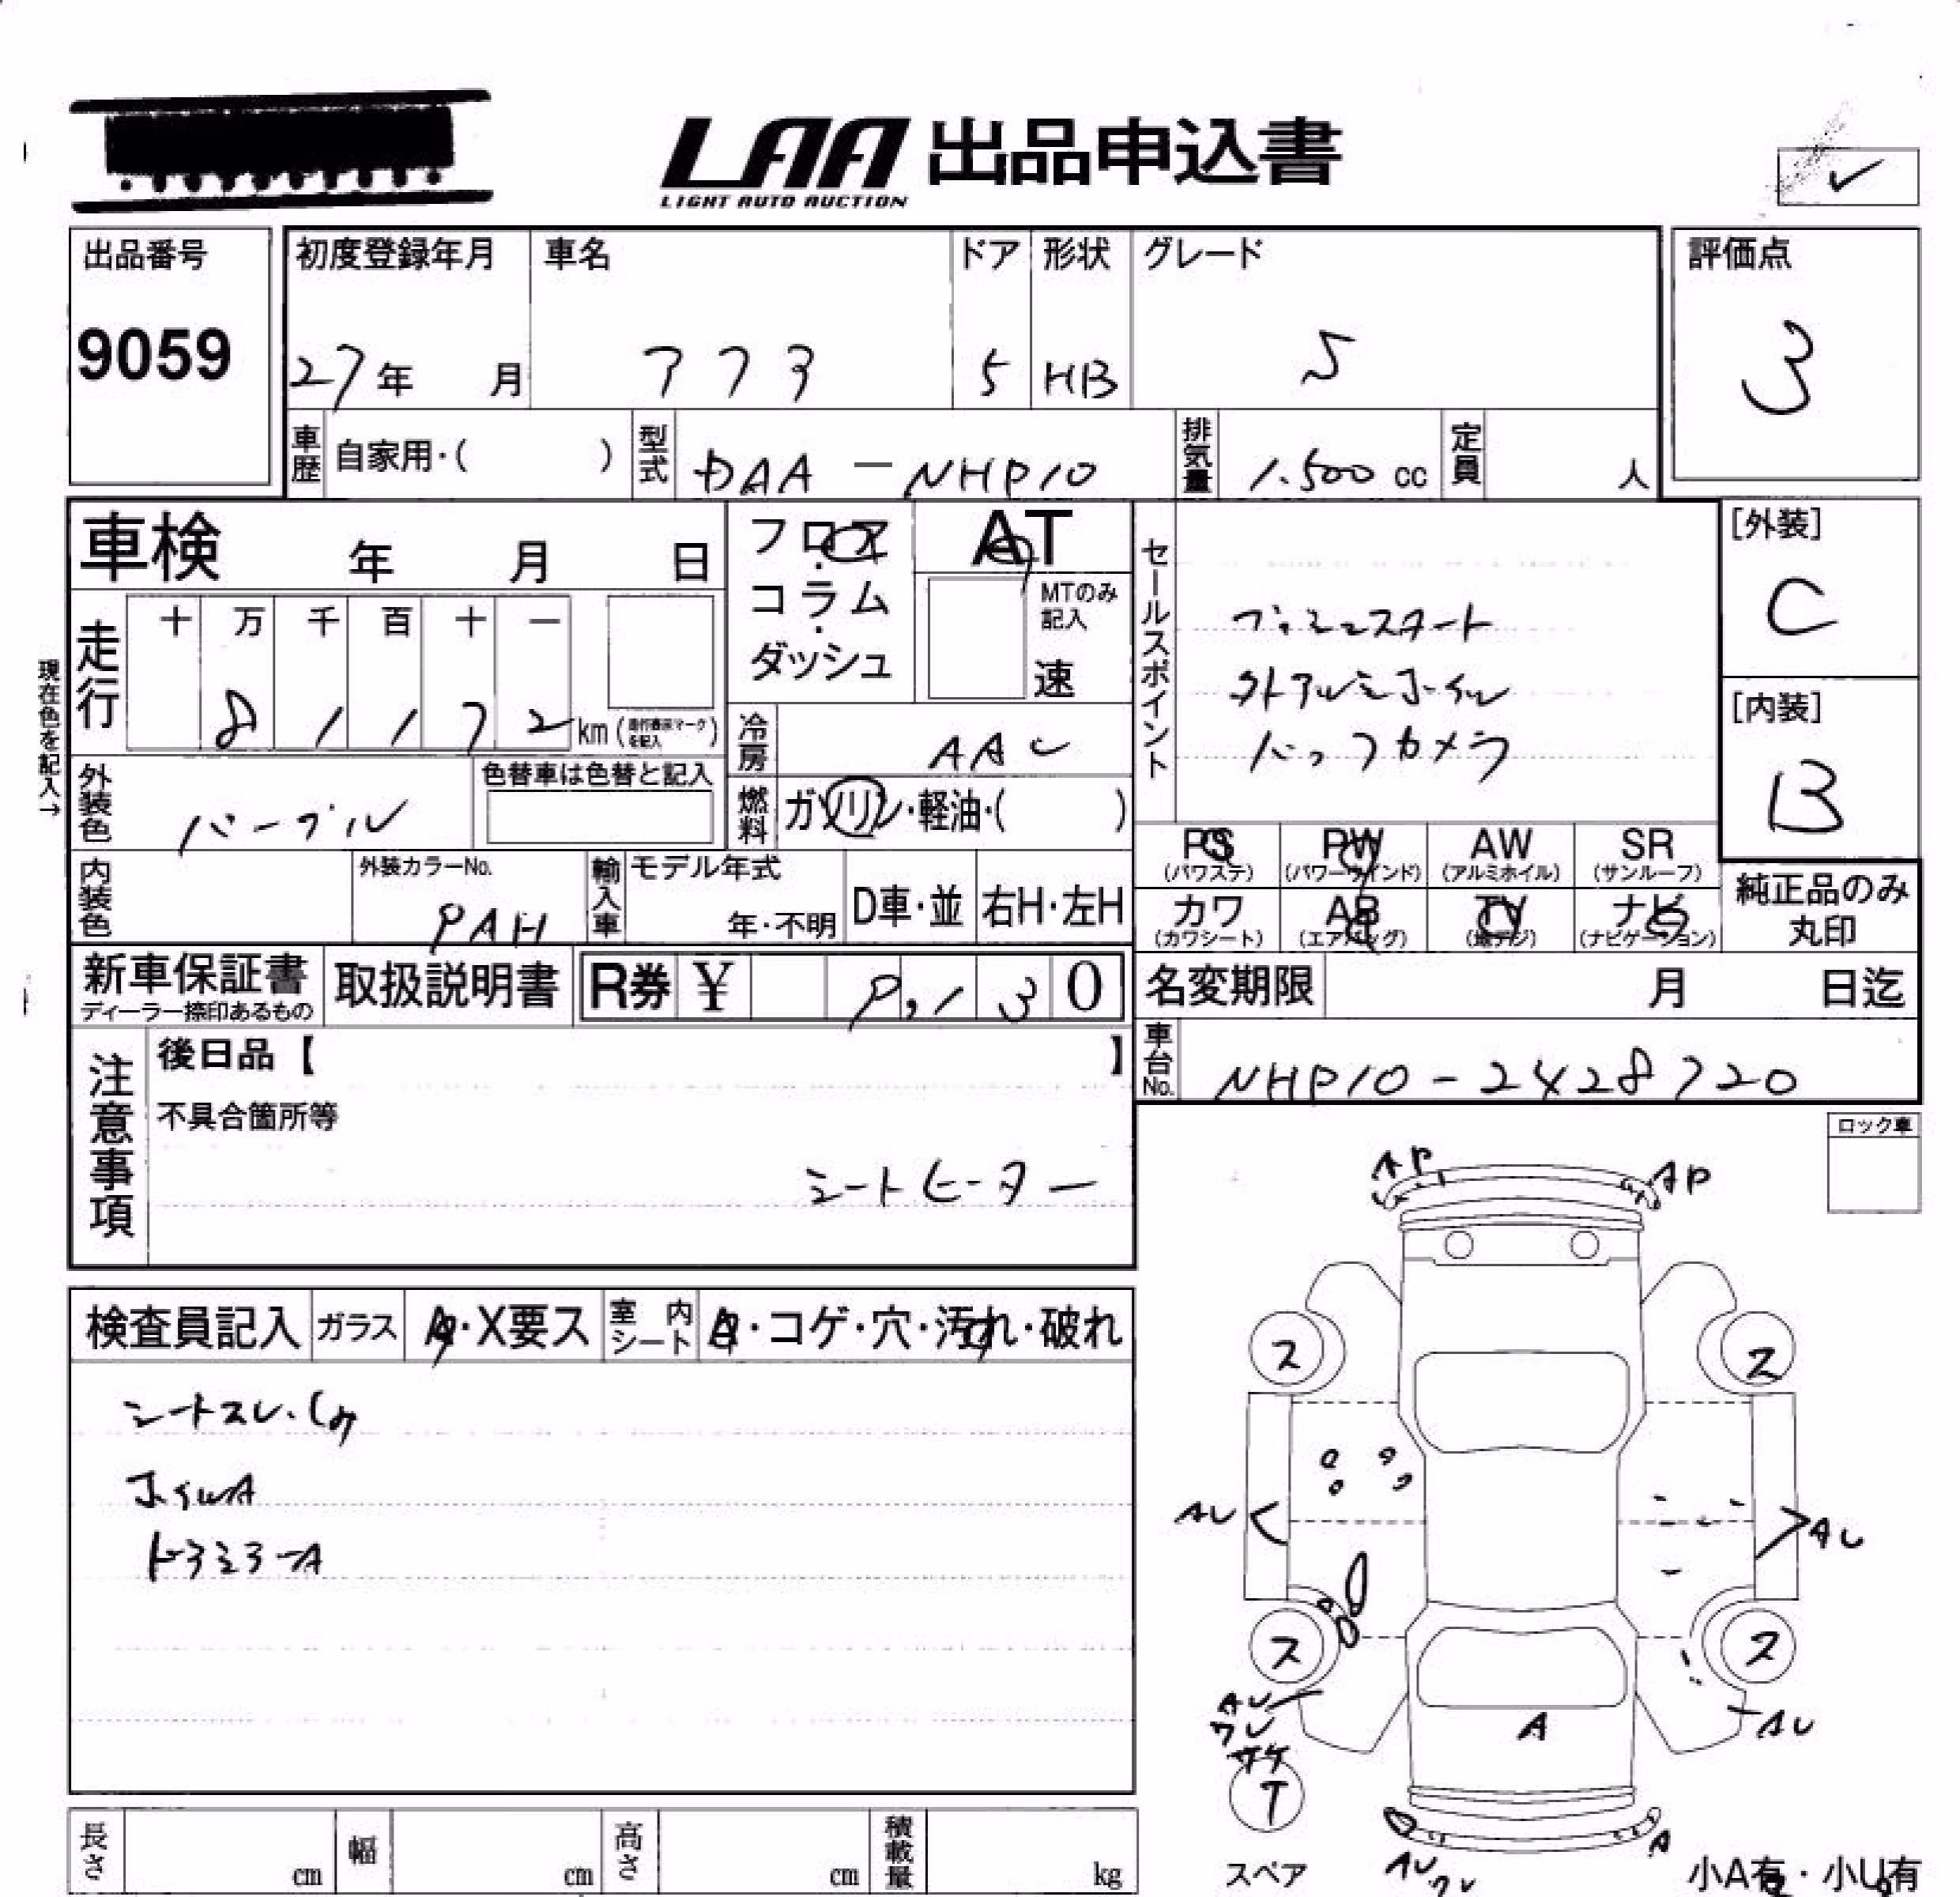 LAA 出品申込書
LIGHT AUTO AUCTION
出品番号 初度登録年月 車名 ドア 形状 グレード 評価点
9059 27年 月 アクア 5 HB S 3
車歴 自家用・( ) 型式 DAA-NHP10 排気量 1.500 cc 定員 人
車検 年 月 日 フロア・コラム・ダッシュ AT
MTのみ記入 速
セールスポイント
プッシュスタート
外アルミホイル
バックカメラ
[外装]
C
[内装]
B
現在色を記入→
走行 十 万 千 百 十 一
8 1 1 7 2 km (走行表示マークを記入)
冷房 AAC
外装色 パープル 色替車は色替と記入
燃料 ガソリン・軽油・( )
PS (パワステ) PW (パワーウインド) AW (アルミホイル) SR (サンルーフ)
カワ (カワシート) AB (エアバッグ) TV (地デジ) ナビ (ナビゲーション)
純正品のみ丸印
内装色 外装カラーNo. 9AH 輸入車 モデル年式 年・不明 D車・並 右H・左H
新車保証書 ディーラー捺印あるもの 取扱説明書 R券 ¥ 9,130
名変期限 月 日迄
車台No. NHP10-2428720
注意事項
後日品【 】
不具合箇所等
シートヒーター
ロック車
AP AP
検査員記入 ガラス A・X要ス 室内シート A・コゲ・穴・汚れ・破れ
シートスレ.シミ
ホイルA
ドアミラーA
ス ス
AU AU
ス ス
AU
ワレ
サケ
A
AU
T
スペア
AU
ワレ
A
長さ cm 幅 cm 高さ cm 積載量 kg
小A有・小U有